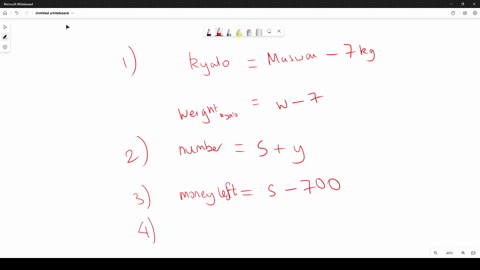 Microsoft Whiteboard
Untitled whiteboard
1) Kyalo = Maswai - 7 kg
Weight kyalo = w - 7
2) number = S + y
3) money left = s - 700
4)
40%